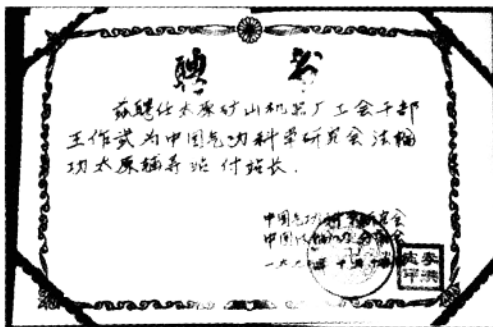 聘书
兹聘任太原矿山机器厂工会干部
王作武为中国气功科学研究会法轮
功太原辅导站付站长.
中国气功科学研究会
中国法轮功分会
一九九 年十 月十 日
李洪
志印